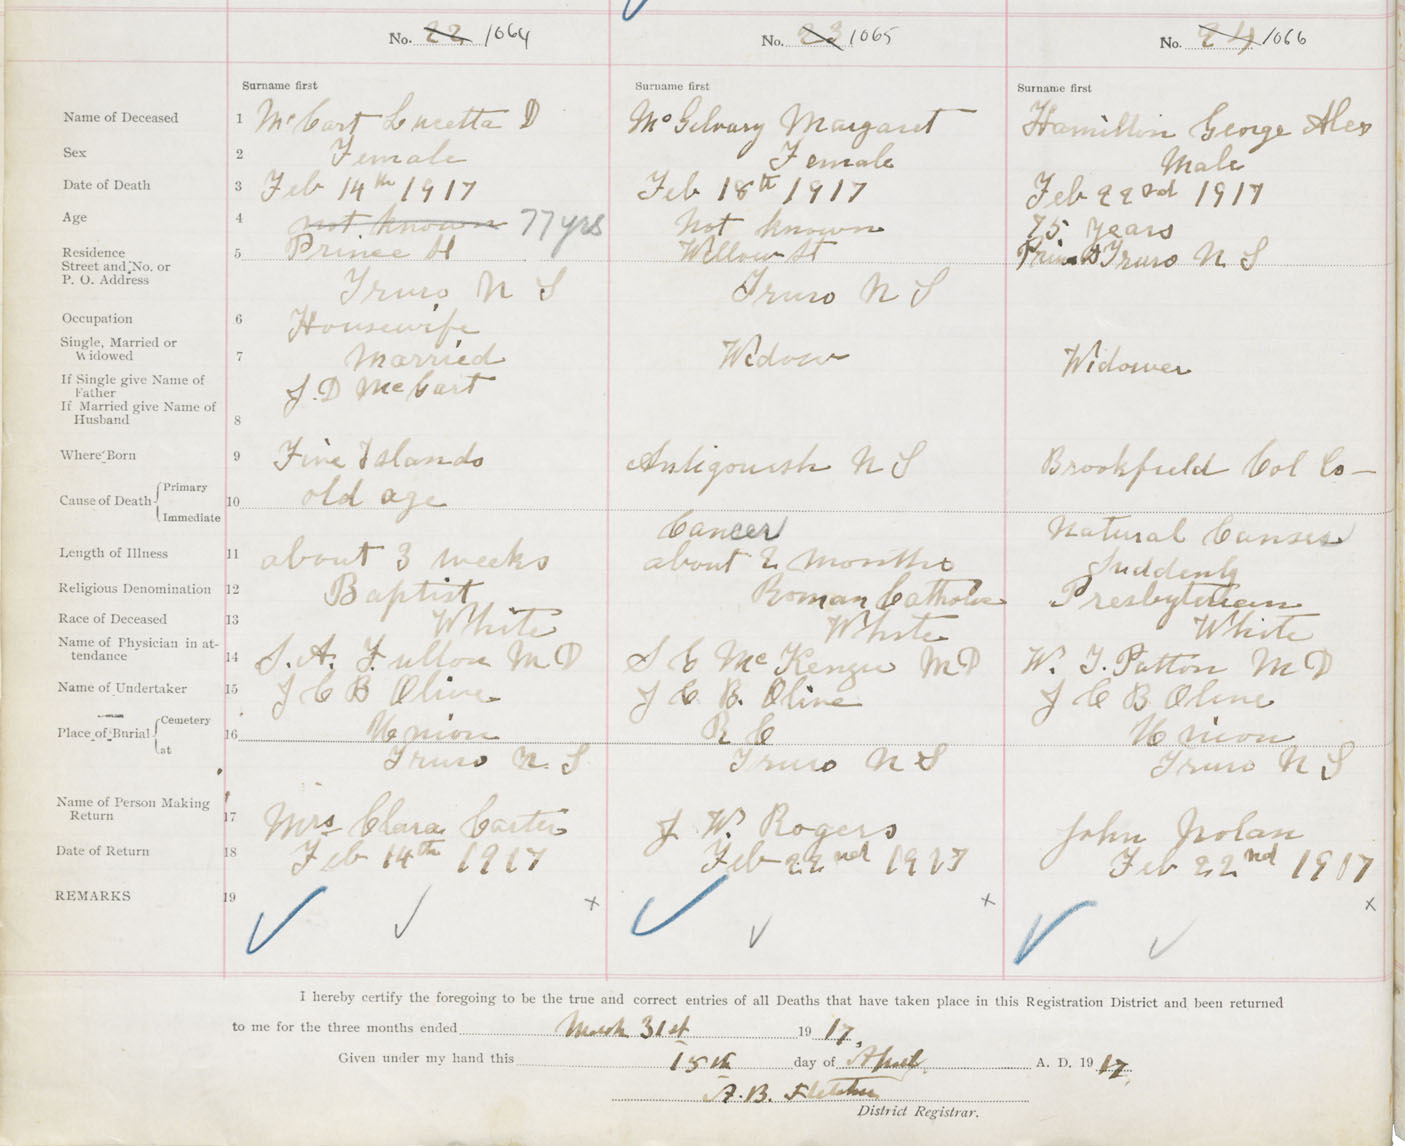 No. 22 1064 No. 23 1065 No. 24 1066
Surname first Surname first Surname first
Name of Deceased 1 McCart Lucetta D McGilvary Margaret Hamilton George Alex
Sex 2 Female Female Male
Date of Death 3 Feb 14th 1917 Feb 18th 1917 Feb 22nd 1917
Age 4 not known 77 yrs Not known 75 years
Residence
Street and No. or
P. O. Address
5 Prince St Willow St Truro N S
Truro N S Truro N S
Occupation 6 Housewife
Single, Married or
Widowed
7 Married Widow Widower
If Single give Name of
Father
If Married give Name of
Husband
8 J. D McCart
Where Born 9 Five Islands Antigonish N S Brookfield Col Co
Cause of Death Primary 10 old age
Immediate Cancer Natural Causes
Length of Illness 11 about 3 weeks about 2 months Suddenly
Religious Denomination 12 Baptist Roman Catholic Presbyterian
Race of Deceased 13 White White White
Name of Physician in at-
tendance
14 S. A. Fulton M D S C McKenzie M D W. T. Patton M D
Name of Undertaker 15 J C B Olive J C B. Olive J C B Olive
Place of Burial Cemetery 16 Union R C Union
at Truro N. S Truro N S Truro N S
Name of Person Making
Return
17 Mrs Clara Carter J. W. Rogers John
Date of Return 18 Feb 14th 1917 Feb 22nd 1917 Feb 22nd 1917
REMARKS 19 x x x
I hereby certify the foregoing to be the true and correct entries of all Deaths that have taken place in this Registration District and been returned
to me for the three months ended March 31st 1917.
Given under my hand this 15th day of April A. D. 1917.
A. B. Fletcher
District Registrar.